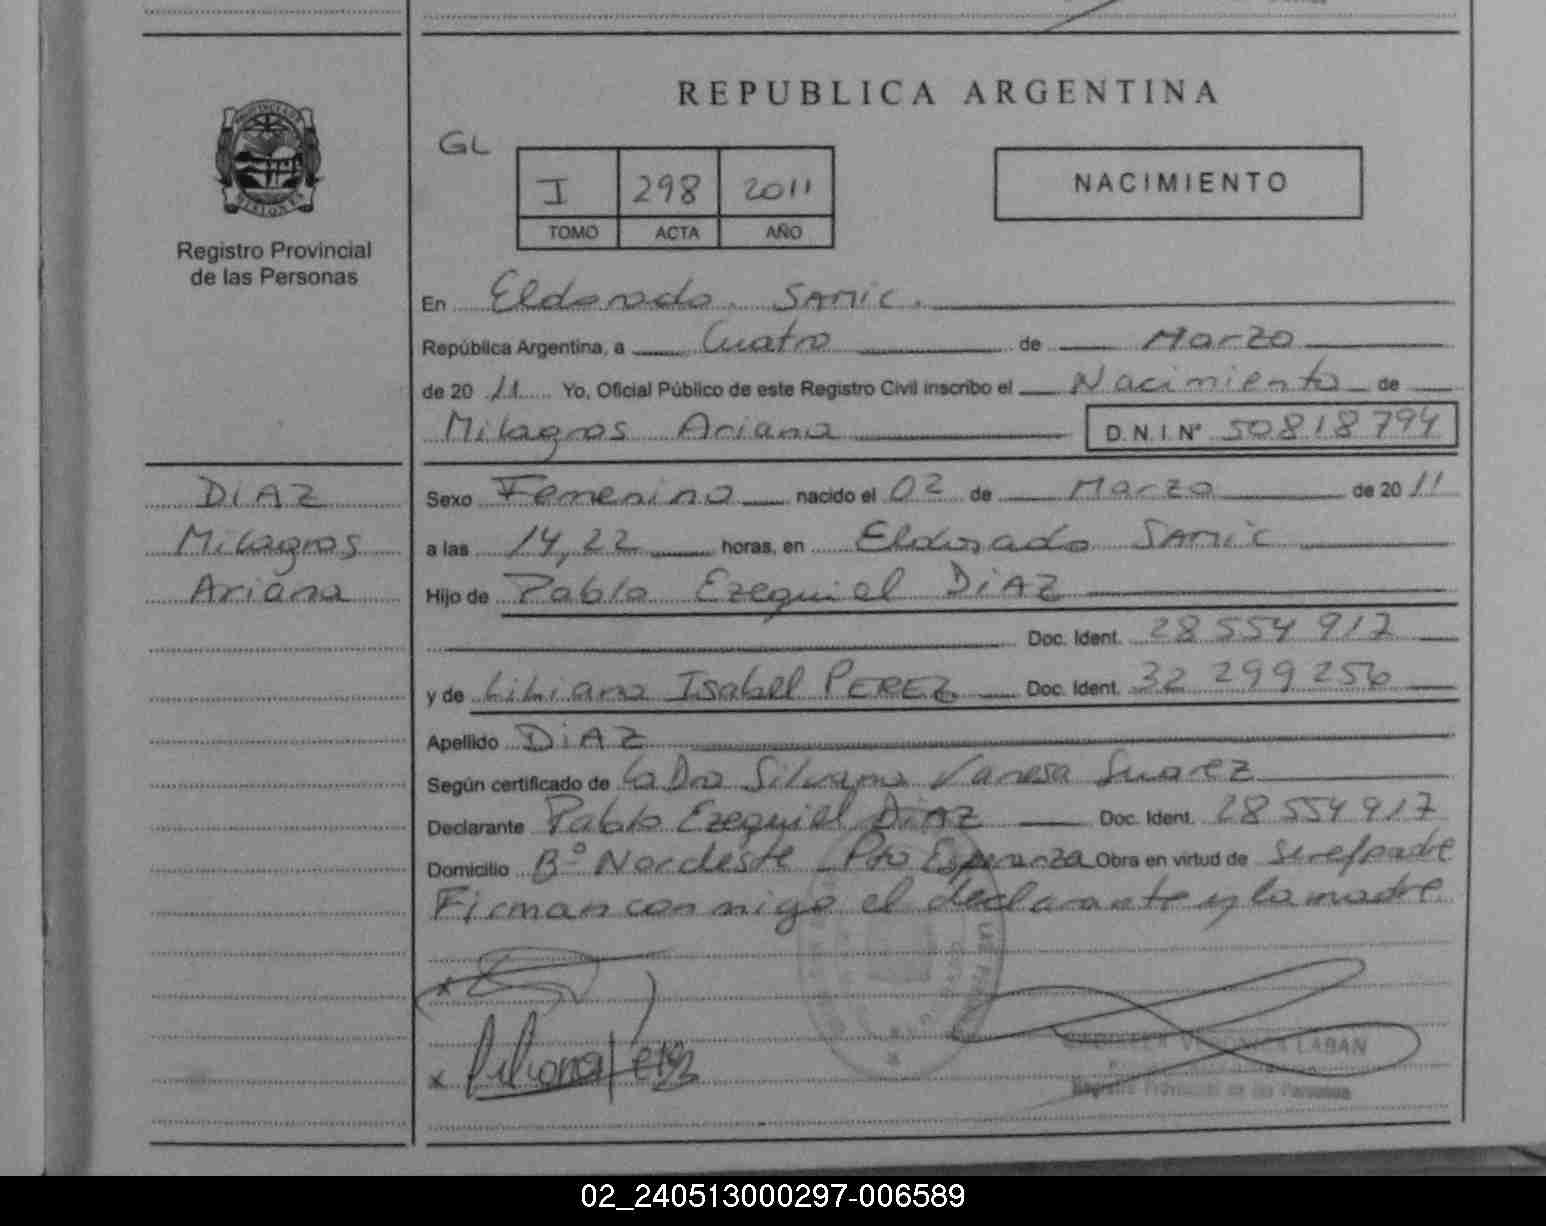 REPUBLICA ARGENTINA
GL
I 298 2011
TOMO ACTA AÑO
NACIMIENTO
MISIONES
Registro Provincial
de las Personas
En Eldorado. SAMIC.
República Argentina, a Cuatro de Marzo
de 20 11 Yo, Oficial Público de este Registro Civil inscribo el Nacimiento de
Milagros Ariana D.N.I. Nº 50818794
DIAZ
Milagros
Ariana
Sexo Femenino nacido el 02 de Marzo de 20 11
a las 14,22 horas, en Eldorado SAMIC
Hijo de Pablo Ezequiel DIAZ
Doc. Ident. 28554917
y de Liliana Isabel PEREZ Doc. Ident. 32 299256
Apellido DIAZ
Según certificado de la Dra Silvana Vanesa Suarez
Declarante Pablo Ezequiel DIAZ Doc. Ident. 28554917
Domicilio Bº Nordeste Pto Esperanza Obra en virtud de ser el padre
Firman conmigo el declarante y la madre.
x
x Liliana
VERONICA LABAN
Registro Provincial de las Personas
02_240513000297-006589